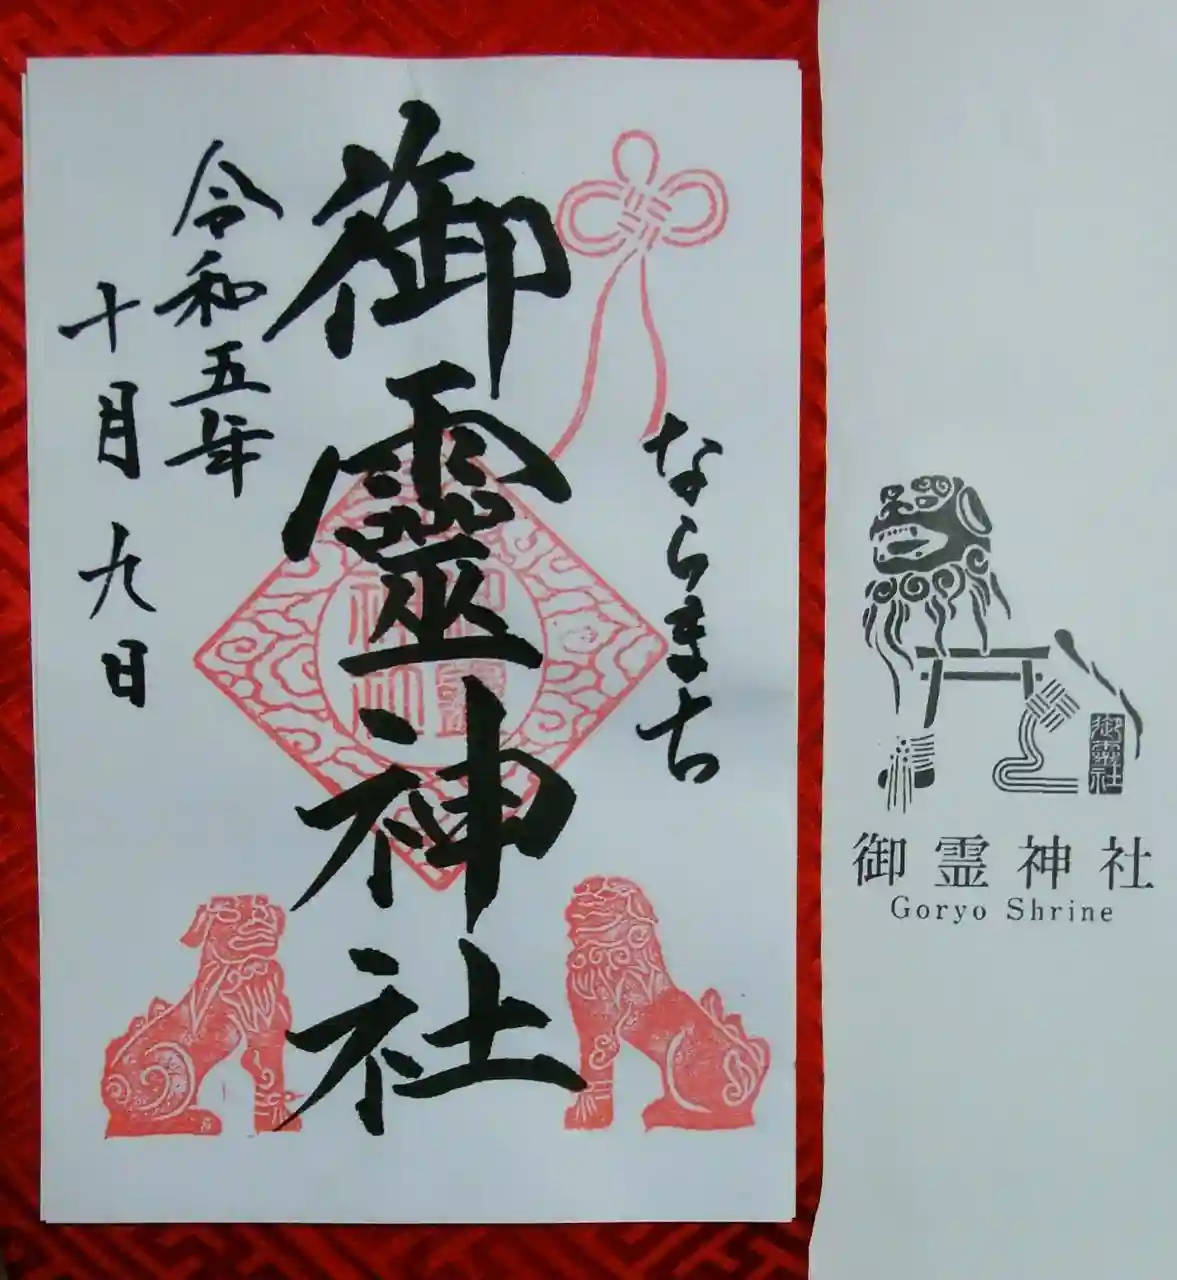 ならまち
御靈神社
令和五年
十月九日
御霊社
御霊神社
Goryo Shrine